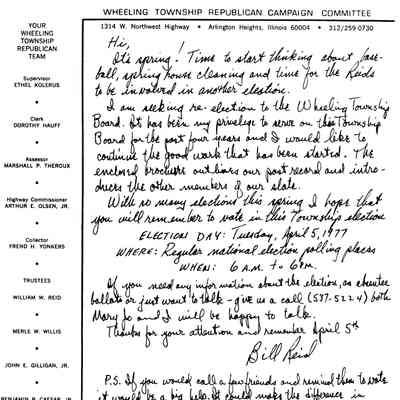 WHEELING TOWNSHIP REPUBLICAN CAMPAIGN COMMITTEE
1314 W. Northwest Highway • Arlington Heights, Illinois 60004 • 312/259-0730
YOUR
WHEELING
TOWNSHIP
REPUBLICAN
TEAM
Supervisor
ETHEL KOLERUS
Clerk
DOROTHY HAUFF
Assessor
MARSHALL P. THEROUX
Highway Commissioner
ARTHUR E. OLSEN, JR.
Collector
FREND H. YONKERS
TRUSTEES
WILLIAM W. REID
MERLE W. WILLIS
JOHN E. GILLIGAN, JR.
BENJAMIN R. CAESAR, JR.
Hi,
It's spring! Time to start thinking about base-
ball, spring house cleaning and time for the Reids
to be involved in another election.
I am seeking re-election to the Wheeling Township
Board. It has been my privelege to serve on this Township
Board for the past four years and I would like to
continue the good work that has been started. The
enclosed brochure outlines our past record and intro-
duces the other members of our slate.
With so many elections this spring I hope that
you will remember to vote in this Township election
ELECTION DAY: Tuesday, April 5, 1977
WHERE: Regular national election polling places
WHEN: 6 A.M. to 6 P.M.
If you need any information about the election, an absentee
ballot or just want to talk - give us a call (537-5224) both
Mary Jo and I will be happy to talk.
Thanks for your attention and remember April 5th
Bill Reid
P.S. If you would call a few friends and remind them to vote
it would be a big help. It could make the difference in